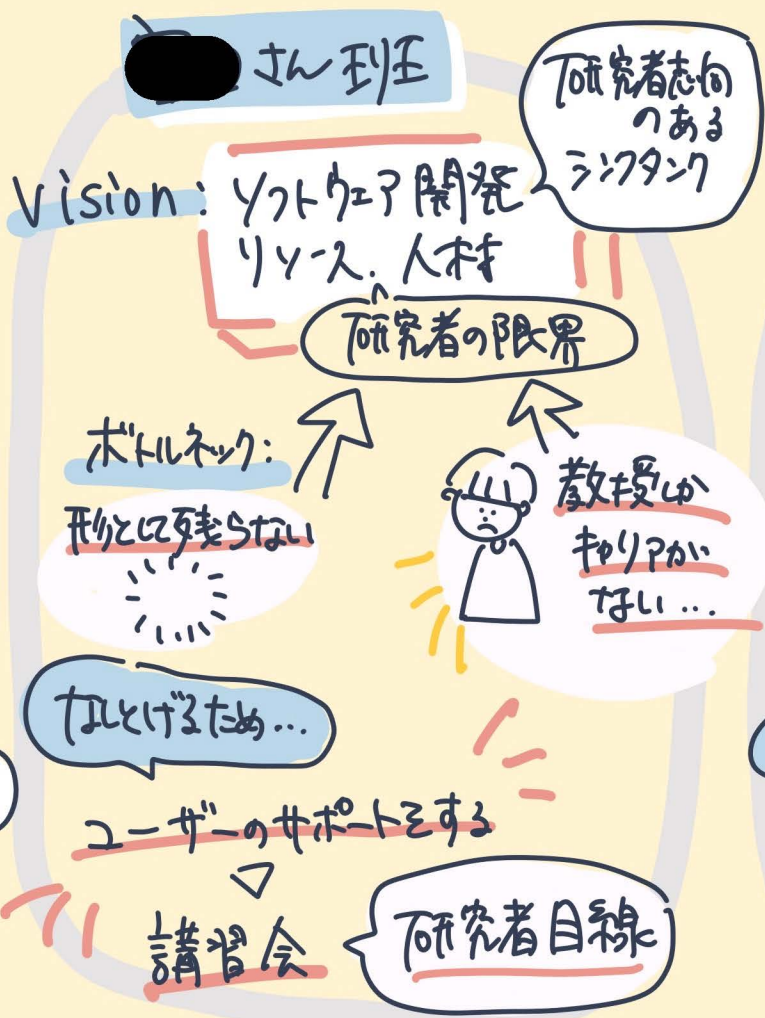 さん班
研究者志向
のある
シンクタンク
Vision:
ソフトウェア開発
リソース.人材
研究者の限界
ボトルネック:
形として残らない
教授しか
キャリアがい
ない...
なしとげるため...
ユーザーのサポートをする
講習会
研究者目線